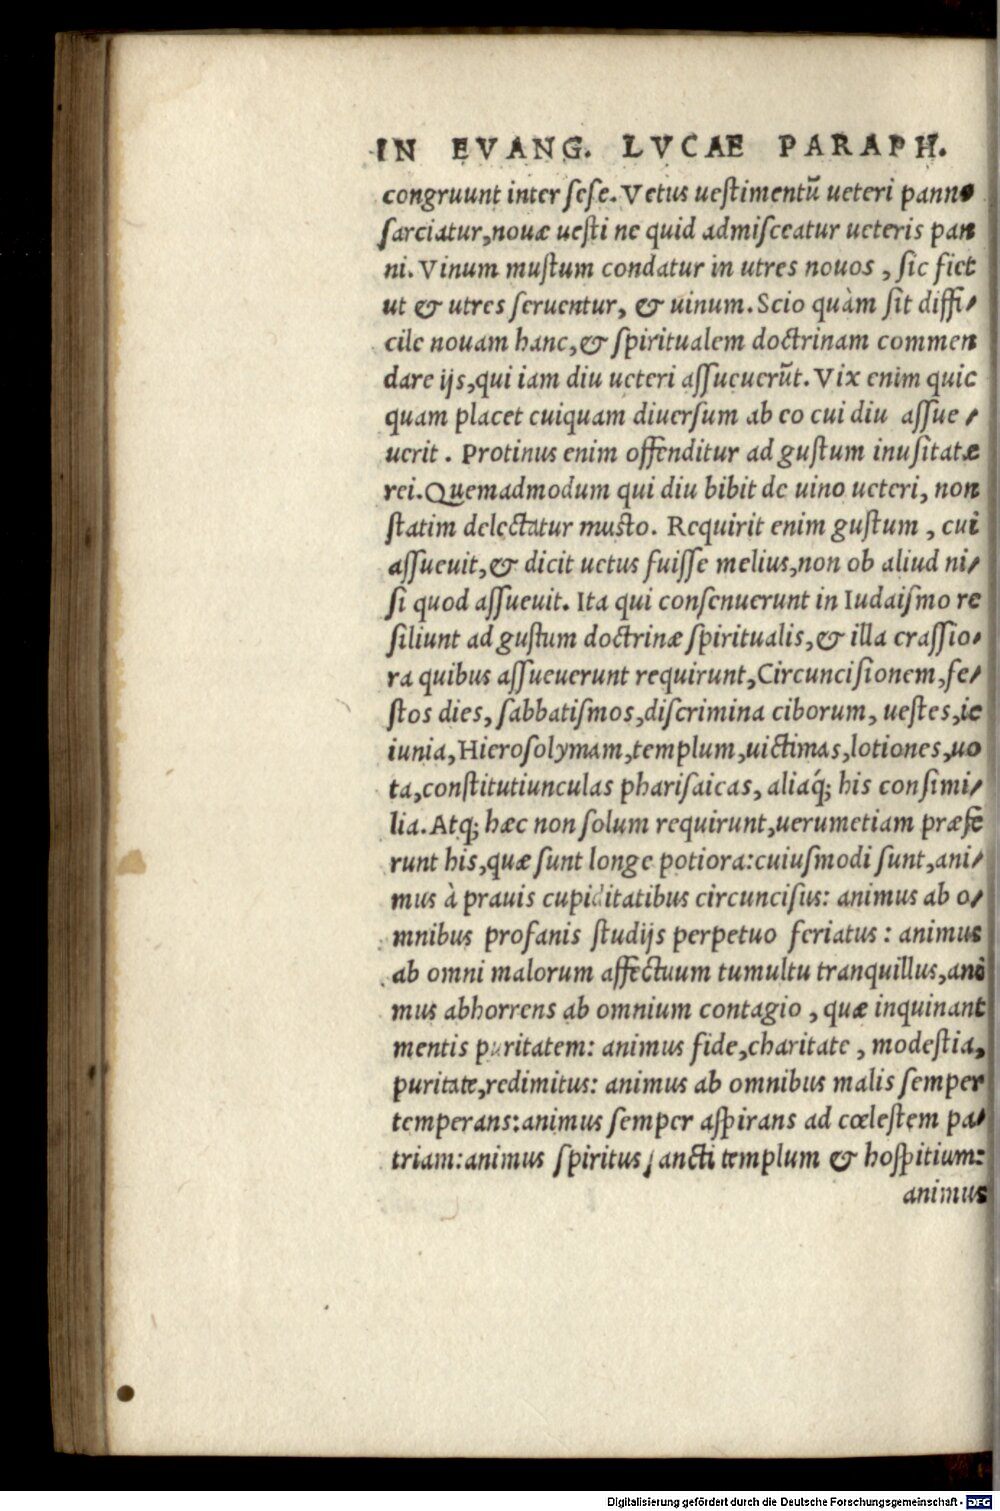 IN EVANG. LVCAE PARAPH.
congruunt inter ſeſe. Vetus ueſtimentũ ueteri panno
ſarciatur, nouæ ueſti ne quid admiſceatur ueteris pan
ni. Vinum muſtum condatur in utres nouos, ſic fiet
ut & utres ſeruentur, & uinum. Scio quàm ſit diffi/
cile nouam hanc, & ſpiritualem doctrinam commen
dare ijs, qui iam diu ueteri aſſueuerũt. Vix enim quic
quam placet cuiquam diuerſum ab eo cui diu aſſue/
uerit. Protinus enim offenditur ad guſtum inuſitatæ
rei. Quemadmodum qui diu bibit de uino ueteri, non
ſtatim delectatur muſto. Requirit enim guſtum, cui
aſſueuit, & dicit uetus fuiſſe melius, non ob aliud ni/
ſi quod aſſueuit. Ita qui conſenuerunt in Iudaiſmo re
ſiliunt ad guſtum doctrinæ ſpiritualis, & illa craſſio/
ra quibus aſſueuerunt requirunt, Circunciſionem, fe/
ſtos dies, ſabbatiſmos, diſcrimina ciborum, ueſtes, ie
iunia, Hieroſolymam, templum, uictimas, lotiones, uo
ta, conſtitutiunculas phariſaicas, aliaq́; his conſimi/
lia. Atq; hæc non ſolum requirunt, uerumetiam præfe
runt his, quæ ſunt longe potiora: cuiuſmodi ſunt, ani/
mus à prauis cupiditatibus circunciſus: animus ab o/
mnibus profanis ſtudijs perpetuo feriatus: animus
ab omni malorum affectuum tumultu tranquillus, ani
mus abhorrens ab omnium contagio, quæ inquinant
mentis puritatem: animus fide, charitate, modeſtia,
puritate, redimitus: animus ab omnibus malis ſemper
temperans: animus ſemper aſpirans ad cœleſtem pa/
triam: animus ſpiritus ſancti templum & hoſpitium:
animus
Digitalisierung gefördert durch die Deutsche Forschungsgemeinschaft - DFG